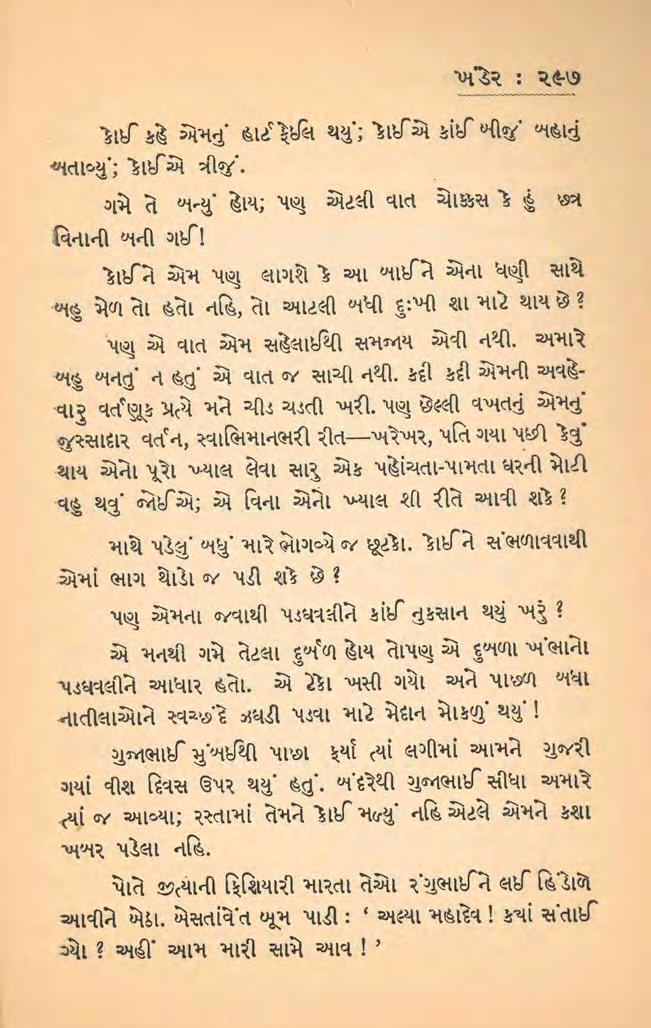 ખંડેર : ૨૯૭
કોઈ કહે એમનું હાર્ટ ફેઈલ થયું; કોઈએ કાંઈ બીજું બહાનું
બતાવ્યું; કોઈએ ત્રીજું.
ગમે તે બન્યું હોય; પણ એટલી વાત ચોક્કસ કે હું છત્ર
વિનાની બની ગઈ!
કોઈને એમ પણ લાગશે કે આ બાઈને એના ધણી સાથે
બહુ મેળ તો હતો નહિ, તો આટલી બધી દુઃખી શા માટે થાય છે?
પણ એ વાત એમ સહેલાઈથી સમજાય એવી નથી. અમારે
બહુ બનતું ન હતું એ વાત જ સાચી નથી. કદી કદી એમની અવહે-
વારુ વર્તણૂક પ્રત્યે મને ચીડ ચડતી ખરી. પણ છેલ્લી વખતનું એમનું
જુસ્સાદાર વર્તન, સ્વાભિમાનભરી રીત—ખરેખર, પતિ ગયા પછી કેવું
થાય એનો પૂરો ખ્યાલ લેવા સારુ એક પહોંચતા-પામતા ઘરની મોટી
વહુ થવું જોઈએ; એ વિના એનો ખ્યાલ શી રીતે આવી શકે?
માથે પડેલું બધું મારે ભોગવ્યે જ છૂટકો. કોઈને સંભળાવવાથી
એમાં ભાગ થોડો જ પડી શકે છે?
પણ એમના જવાથી પડઘવલીને કાંઈ નુકસાન થયું ખરું?
એ મનથી ગમે તેટલા દુર્બળ હોય તોપણ એ દુબળા ખંભાનો
પડઘવલીને આધાર હતો. એ ટેકો ખસી ગયો અને પાછળ બધા
નાતીલાઓને સ્વચ્છંદે ઝઘડી પડવા માટે મેદાન મોકળું થયું!
ગુજાભાઈ મુંબઈથી પાછા ફર્યા ત્યાં લગીમાં આમને ગુજરી
ગયાં વીશ દિવસ ઉપર થયું હતું. બંદરેથી ગુજાભાઈ સીધા અમારે
ત્યાં જ આવ્યા; રસ્તામાં તેમને કોઈ મળ્યું નહિ એટલે એમને કશા
ખબર પડેલા નહિ.
પોતે જીત્યાની ફિશિયારી મારતા તેઓ રંગુભાઈને લઈ હિંડોળે
આવીને બેઠા. બેસતાંવેંત બૂમ પાડી : ‘ અલ્યા મહાદેવ! ક્યાં સંતાઈ
ગ્યો? અહીં આમ મારી સામે આવ!’